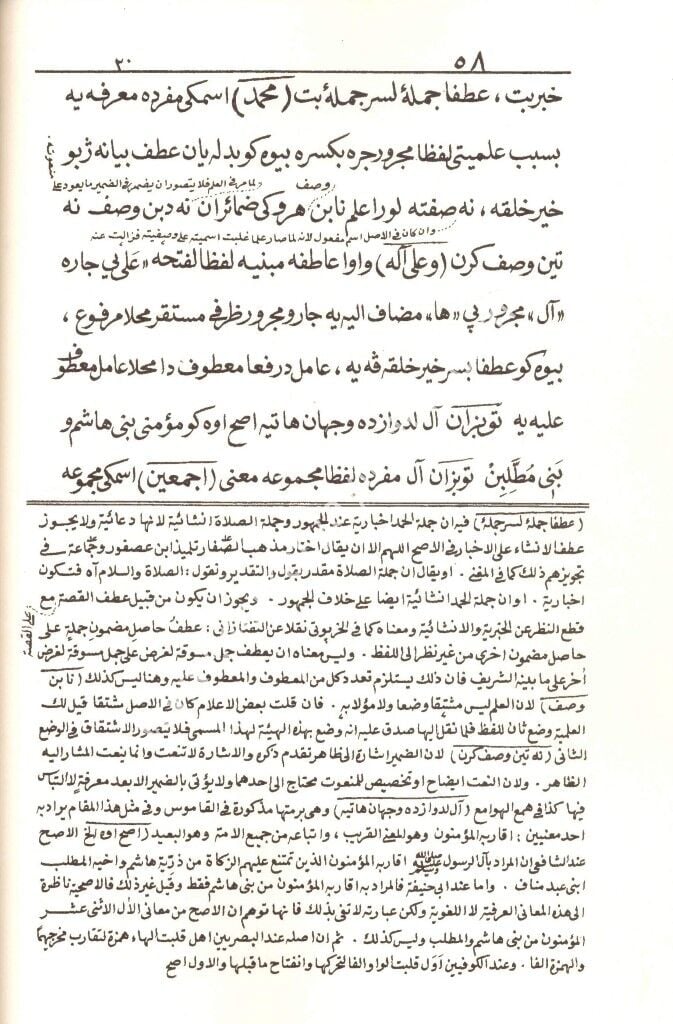 ٥٨
٢٠
خبربت ، عطفا جملهٔ لسر جملهٔ بت (محمد) اسمكى مفرده معرفه يه
بسبب علميتى لفظا مجرور جره بكسره بيوه كو بدله يان عطف بيانه ژبو
خير خلقه ، نه صفته لورا علم نابن وصف هروكى ضمائران نه دبن وصف نه
منعوته.
ولما مر فى العلم فلا يتصور ان يضمر فى الضمير ما يعود على
وان كان فى الاصل اسم مفعول لانه لما صار علما غلبت اسميته على وصفيته فزالت عنه
تين وصف كرن (وعلى آله) واوا عاطفه مبنيه لفظا لفتحه «على بى جاره
«آل» مجرور بى «ها» مضاف اليه يه جار ومجرور ظرفى مستقر محلا مرفوع ،
بيوه كو عطفا بسر خير خلقه ڤه يه ، عامل د رفعا معطوف دا محلا عامل معطوف
عليه يه توبزان آل لدوازده وجهان هاتيه اصح اوه كو مؤمنى بنى هاشم و
بنى مطلبن توبزان آل مفرده لفظا مجموعه معنى (اجمعين) اسمكى مجموعه
(عطفا جملهٔ لسر جملهٔ) فيه ان جملة الحمد اخبارية عند الجمهور وجملة الصلاة انشائية لانها دعائية ولا يجوز
عطف الانشاء على الاخبار فى الاصح اللهم الا ان يقال اختار مذهب الصفار تلميذ ابن عصفور وجماعة فى
تجويزهم ذلك كما فى المغنى . او يقال ان جملة الصلاة مقدر بقول والتقدير ونقول : الصلاة والسلام آه فتكون
اخبارية . او ان جملة الحمد انشائية ايضا على خلاف الجمهور . ويجوز ان يكون من قبيل عطف القصة على القصة مع
قطع النظر عن الخبرية والانشائية ومعناه كما فى الخربوتى نقلا عن التفتازانى : عطف حاصل مضمون جملة على
حاصل مضمون اخرى من غير نظر الى اللفظ . وليس معناه ان يعطف جمل مسوقة لغرض على جمل مسوقة لغرض
اخر على ما بينه الشريف فان ذلك يستلزم تعدد كل من المعطوف والمعطوف عليه وهنا ليس كذلك (نابن
وصف) لان العلم ليس مشتقا وضعا ولا مؤلا به . فان قلت بعض الاعلام كان فى الاصل مشتقا قيل لك
العلمية وضع ثان للفظ فلما نقل اليها صدق عليه انه وضع بهذه الهيئة لهذا المسمى فلا يتصور الاشتقاق فى الوضع
الثانى (نه تين وصف كرن) لان الضمير اشارة الى ظاهر تقدم ذكره والاشارة لا تنعت وانما ينعت المشار اليه
الظاهر . ولان النعت ايضاح او تخصيص للمنعوت محتاج الى احدهما ولا يؤتى بالضمير الا بعد معرفة لا التباس
فيها كذا فى همع الهوامع (آل لدوازده وجهان هاتيه) وهى برمتها مذكورة فى القاموس وفى مثل هذا المقام يراد به
احد معنيين : اقاربه المؤمنون وهو المعنى القريب ، واتباعه من جميع الامة وهو البعيد (اصح اوه الخ) الاصح
عند الشافعى ان المراد بآل الرسول ﷺ اقاربه المؤمنون الذين تمتنع عليهم الزكاة من ذرية هاشم واخيه المطلب
ابنى عبد مناف . واما عند ابى حنيفة فالمراد به اقاربه المؤمنون من بنى هاشم فقط وقيل غير ذلك فالاصحية ناظرة
الى هذه المعانى العرفية لا اللغوية ولكن عبارته لا تفى بذلك فانها توهم ان الاصح من معانى الآل الاثنى عشر
المؤمنون من بنى هاشم والمطلب وليس كذلك . ثم ان اصله عند البصريين اهل قلبت الهاء همزة لتقارب مخرجيهما
والهمزة الفا . وعند الكوفيين اول قلبت الواو الفا لتحركها وانفتاح ما قبلها والاول اصح